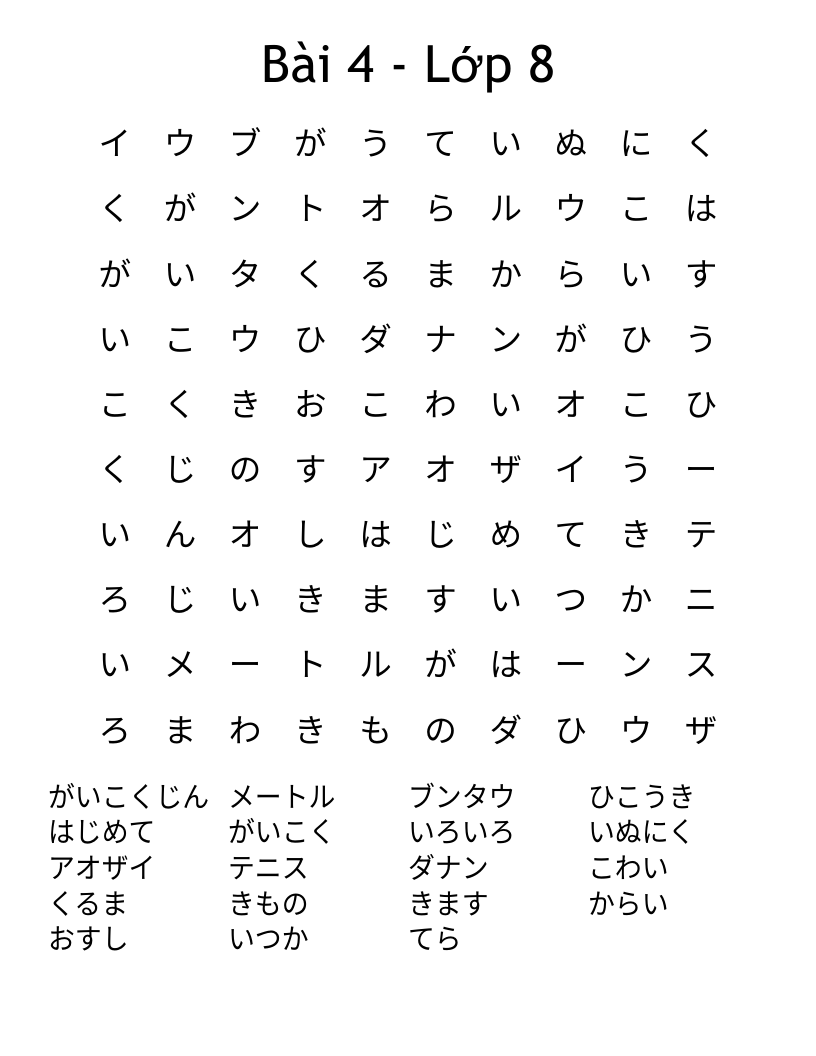 Bài 4 - Lớp 8
イ ウ ブ が う て い ぬ に く
く が ン ト オ ら ル ウ こ は
が い タ く る ま か ら い す
い こ ウ ひ ダ ナ ン が ひ う
こ く き お こ わ い オ こ ひ
く じ の す ア オ ザ イ う ー
い ん オ し は じ め て き テ
ろ じ い き ま す い つ か ニ
い メ ー ト ル が は ー ン ス
ろ ま わ き も の ダ ひ ウ ザ
がいこくじん メートル ブンタウ ひこうき
はじめて がいこく いろいろ いぬにく
アオザイ テニス ダナン こわい
くるま きもの きます からい
おすし いつか てら